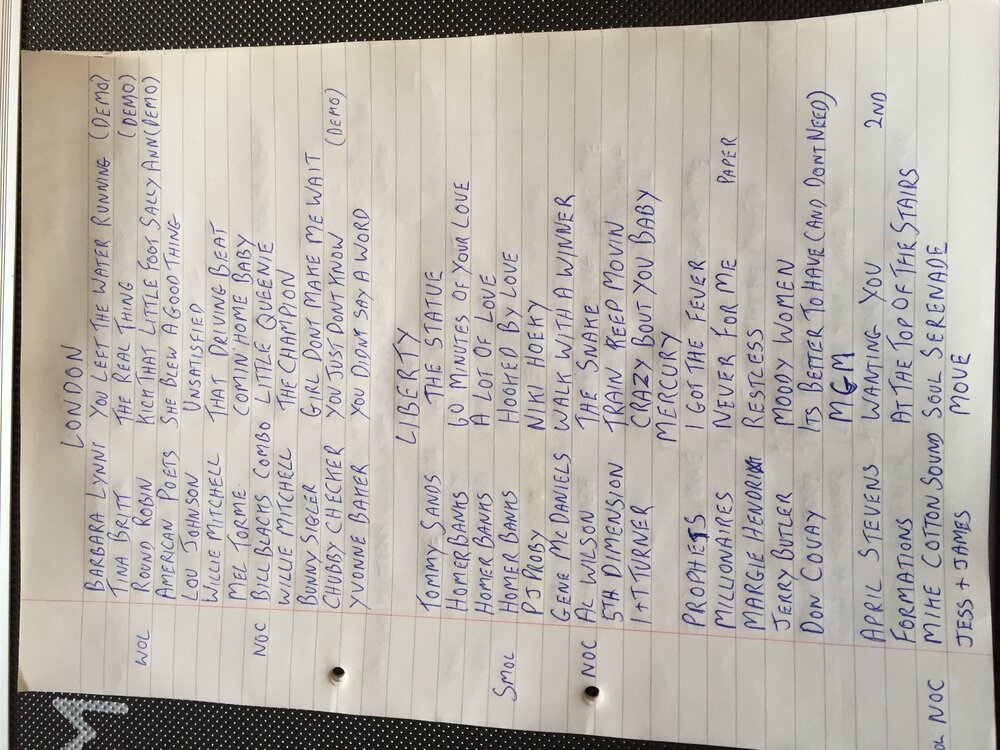 LONDON
BARBARA LYNN YOU LEFT THE WATER RUNNING (DEMO)
TINA BRITT THE REAL THING (DEMO)
WOL ROUND ROBIN KICK THAT LITTLE FOOT SALLY ANN (DEMO)
AMERICAN POETS SHE BLEW A GOOD THING
LOU JOHNSON UNSATISFIED
WILLIE MITCHELL THAT DRIVING BEAT
MEL TORME COMIN HOME BABY
NOC BILL BLACKS COMBO LITTLE QUEENIE
WILLIE MITCHELL THE CHAMPION
BUNNY SIGLER GIRL DONT MAKE ME WAIT
CHUBBY CHECKER YOU JUST DONT KNOW (DEMO)
YVONNE BAKER YOU DIDNT SAY A WORD
LIBERTY
TOMMY SANDS THE STATUE
HOMER BANKS 60 MINUTES OF YOUR LOVE
HOMER BANKS A LOT OF LOVE
SMOL HOMER BANKS HOOKED BY LOVE
PJ PROBY NIKI HOEKY
GENE MC DANIELS WALK WITH A WINNER
NOC AL WILSON THE SNAKE
5TH DIMENSION TRAIN KEEP MOVIN
I + T TURNER CRAZY BOUT YOU BABY
MERCURY
PROPHETS I GOT THE FEVER
MILLIONARES NEVER FOR ME PAPER
MARGIE HENDRIX RESTLESS
JERRY BUTLER MOODY WOMEN
DON COVAY ITS BETTER TO HAVE (AND DONT NEED)
MGM
APRIL STEVENS WANTING YOU 2ND
FORMATIONS AT THE TOP OF THE STAIRS
NOC MIKE COTTON SOUND SOUL SERENADE
JESS + JAMES MOVE